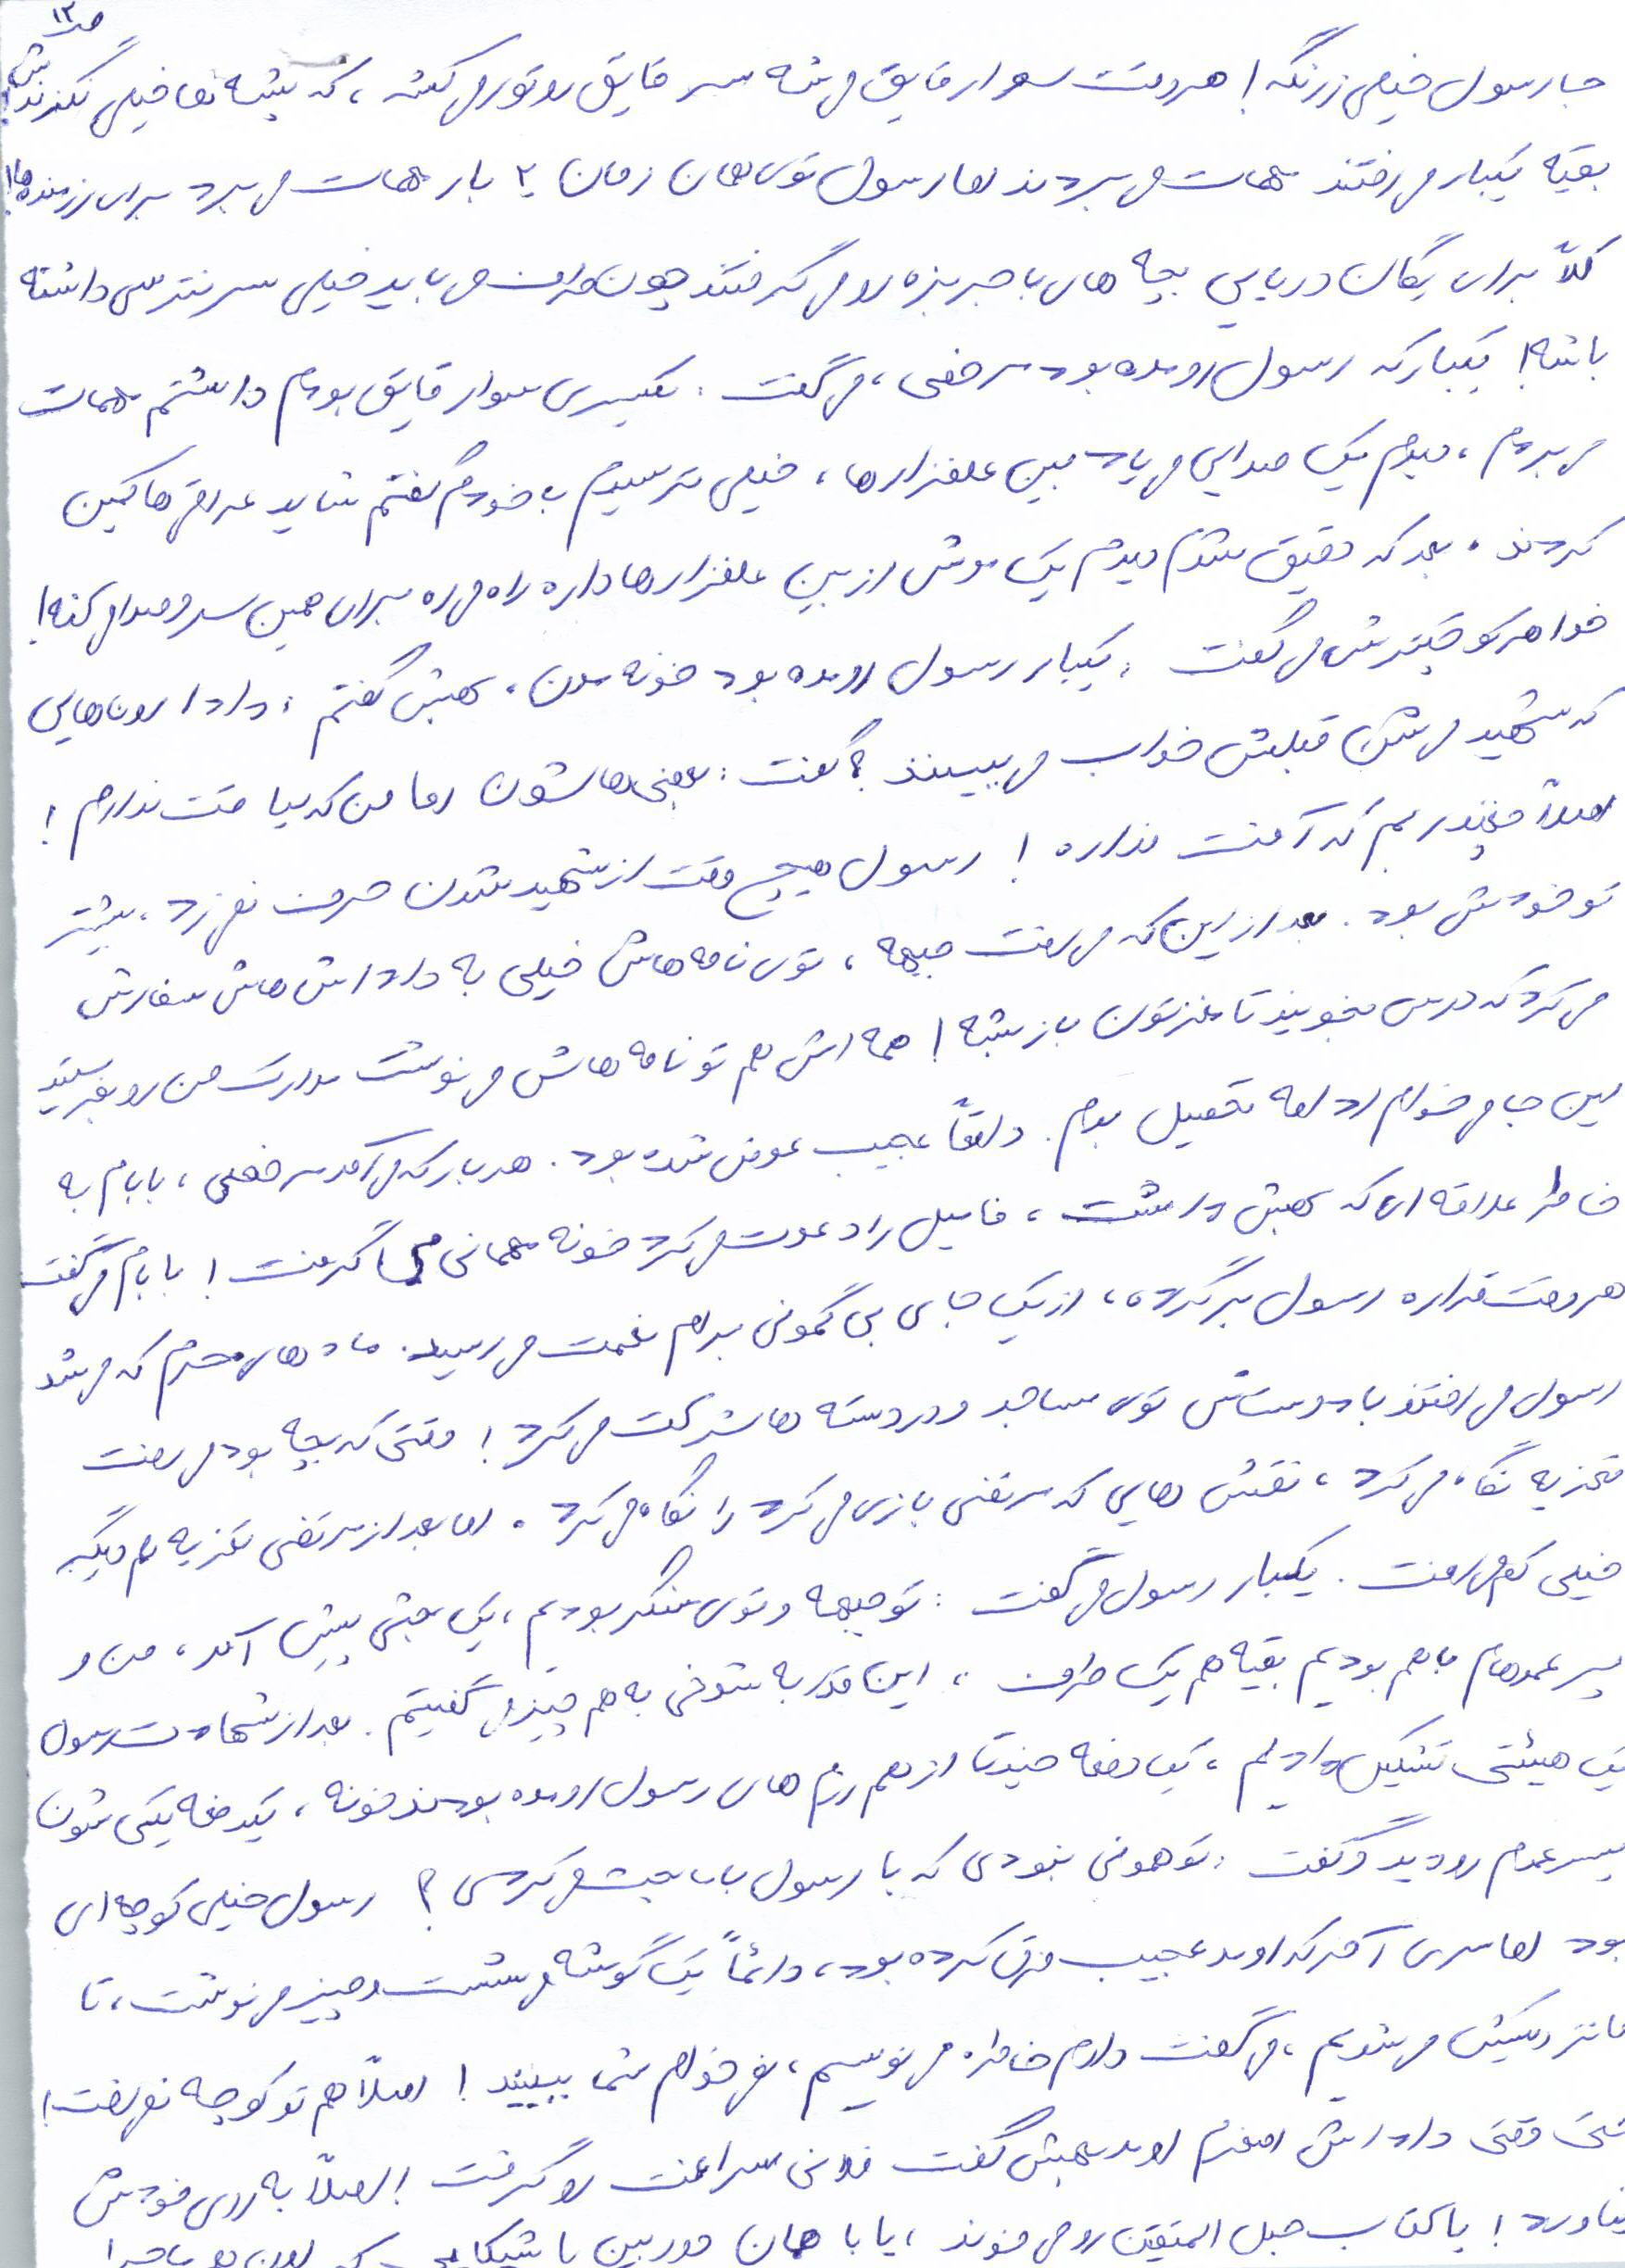 صد ۱۲
جا رسول خیلی زرنگه! هر وقت سوار قایق می شه سر قایق رو تور می کشه، که پشه ها خیلی نگزندش!
بقیه یکبار می رفتند مهمات می بردند اما رسول توی همان زمان ۲ بار مهمات می برد برای رزمنده ها!
کلاً برای یگان دریایی بچه های با جربزه رو می گرفتند چون طرف می باید خیلی سر نترسی داشته
باشه! یکبار که رسول اومده بود مرخصی، می گفت: یکسری سوار قایق بودم داشتم مهمات
می بردم، دیدم یک صدایی می یاد بین علفزارها، خیلی ترسیدم با خودم گفتم شاید عراقی ها کمین
کردند. بعد که دقیق شدم دیدم یک موش از بین علفزارها داره راه می ره برای همین سر و صدا می کنه!
خواهر کوچیکترش می گفت: یکبار رسول اومده بود خونه مون، بهش گفتم: دادا اون هایی
که شهید می شن قبلش خواب می بینند؟ گفت: بعضی هاشون اما من که لیاقت ندارم!
اصلاً می پندریم که آفت نداره! رسول هیچ وقت از شهید شدن حرف نمی زد، بیشتر
تو خودش بود. بعد از این که می رفت جبهه، توی نامه هاش خیلی به داداش هاش سفارش
می کرد که درس بخونید تا مغزتون باز بشه! همه اش هم تو نامه هاش می نوشت مدارک من رو بفرستید
این جا می خوام ادامه تحصیل بدم. واقعاً عجیب عوض شده بود. هر بار که می آمد مرخصی، بابام به
خاطر علاقه ای که بهش داشت، فامیل را دعوت می کرد خونه مهمانی می گرفت! بابام می گفت
هر وقت قراره رسول برگرده، از یک جای بی گمونی برام نعمت می رسید. ماه های محرم که می شد
رسول می رفتند با دوستاش توی مساجد و در دسته ها شرکت می کرد! وقتی که بچه بود می رفت
تعزیه نگاه می کرد، نقش هایی که مرتضی بازی می کرد را نگاه می کرد. اما بعد از مرتضی تعزیه هم دیگه
خیلی کم می رفت. یکبار رسول می گفت: تو جبهه و توی سنگر بودیم، یک بحثی پیش آمد، من و
پسر عموهام با هم بودیم بقیه هم یک طرف، این قدر به شوخی به هم چیز می گفتیم. بعد از شهادت رسول
یک هیئتی تشکیل دادیم، یک دفعه چندتا از هم رزم های رسول اومده بودند خونه، یکدفعه یکی شون
پسر عمم رو دید و گفت: تو همونی نبودی که با رسول باب بحث می کردی؟ رسول خیلی کوچه ای
بود اما سری آخر که اومد عجیب فرق کرده بود، دائماً یک گوشه می نشست و چیز می نوشت، تا
ما نزدیکش می شدیم، می گفت دارم خاطره می نویسم، نمی خوام شما ببینید! اصلاً هم تو کوچه نمی رفت!
حتی وقتی داداش اصغرم اومد بهش گفت فلانی سراغت رو گرفت! اصلاً به روی خودش
نیاورد! یا کتاب حبل المتین رو می خوند، یا با همان دوربین